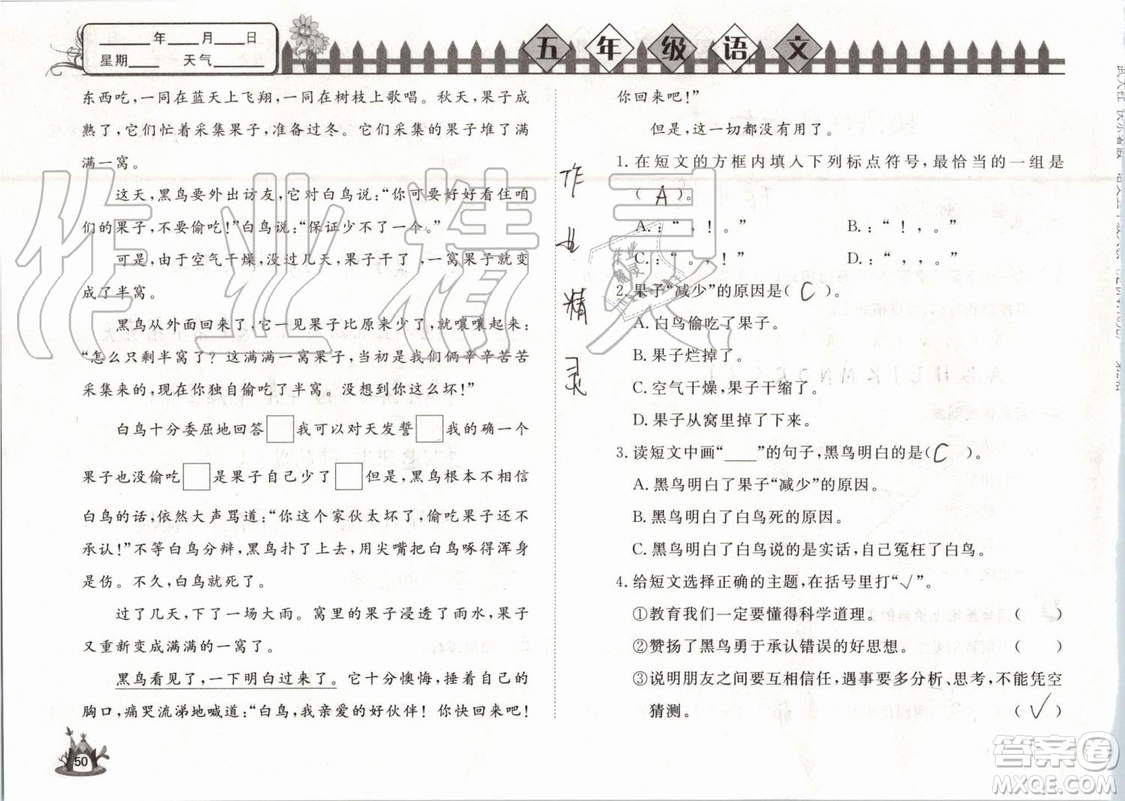 ____年____月____日
星期____ 天气____
五年级语文
东西吃，一同在蓝天上飞翔、一同在树枝上歌唱。秋天，果子成
熟了，它们忙着采集果子，准备过冬。它们采集的果子堆了满
满一窝。
这天，黑鸟要外出访友，它对白鸟说：“你可要好好看住咱
们的果子，不要偷吃！”白鸟说：“保证少不了一个。”
可是，由于空气干燥，没过几天，果子干了，一窝果子就变
成了半窝。
黑鸟从外面回来了，一见果子比原来少了，就嚷嚷起来：
“怎么只剩半窝了？这满满一窝果子，都是我们俩辛辛苦苦
采集来的，现在你独自偷吃了半窝，没想到你这么坏！”
白鸟十分委屈地回答□我可以对天发誓□我的确一个
果子也没偷吃□是果子自己少了□黑鸟根本不相信
白鸟的话，依然大声骂道：“你这个家伙太坏了，偷吃了还不
承认！”不等白鸟分辩，黑鸟扑了上去，用尖嘴把白鸟啄得浑身
是伤。不久，白鸟就死了。
过了几天，下了一场大雨。窝里的果子浸透了雨水，果子
又重新变成满满的一窝了。
黑鸟看见了，一下明白过来了。它十分懊悔，捶着自己的
胸口，痛哭流涕地喊道：“白鸟，我亲爱的好伙伴！你快回来吧！
50
你回来吧！”
但是，这一切都没有用了。
1. 在短文的方框内填入下列标点符号，最恰当的一组是
（ A ）。
A.：“，！。”
B.：“！，。”
C.：“，！。”
D.：“！，。”
2. 果子“减少”的原因是（ C ）。
A. 白鸟偷吃了果子。
B. 果子烂掉了。
C. 空气干燥，果子干缩了。
D. 果子从窝里掉了下来。
3. 读短文中画“____”的句子，黑鸟明白了（ C ）。
A. 黑鸟明白了果子“减少”的原因。
B. 黑鸟明白了白鸟死的原因。
C. 黑鸟明白了白鸟说的是实话，自己冤枉了白鸟。
4. 给短文选择正确的主题，在括号里打“√”。
①教育我们一定要懂得科学道理。（ ）
②赞扬了黑鸟勇于承认错误的好思想。（ ）
③说明朋友之间要互相信任，遇事要多分析、思考，不能凭空
猜测。（ √ ）
作业精灵
作业精灵
答案圈
MXQE.COM